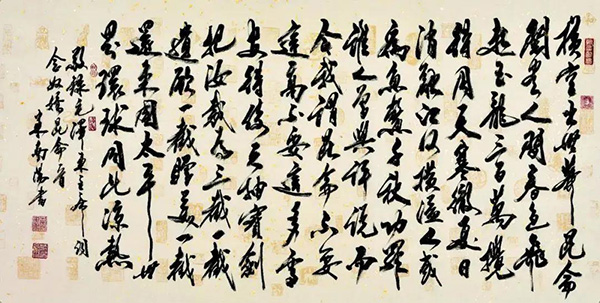 橫空出世莽昆侖
閱盡人間春色飛
起玉龍三百萬攪
得周天寒徹夏日
消融江河橫溢人或
為魚鱉千秋功罪
誰人曾與評說而
今我謂昆侖不要
這高不要這多雪
安得倚天抽寶劍
把汝裁為三截一截
遺歐一截贈美一截
還東國太平世
界環球同此凉熱
錄毛澤東主席詞
念奴嬌昆侖
書